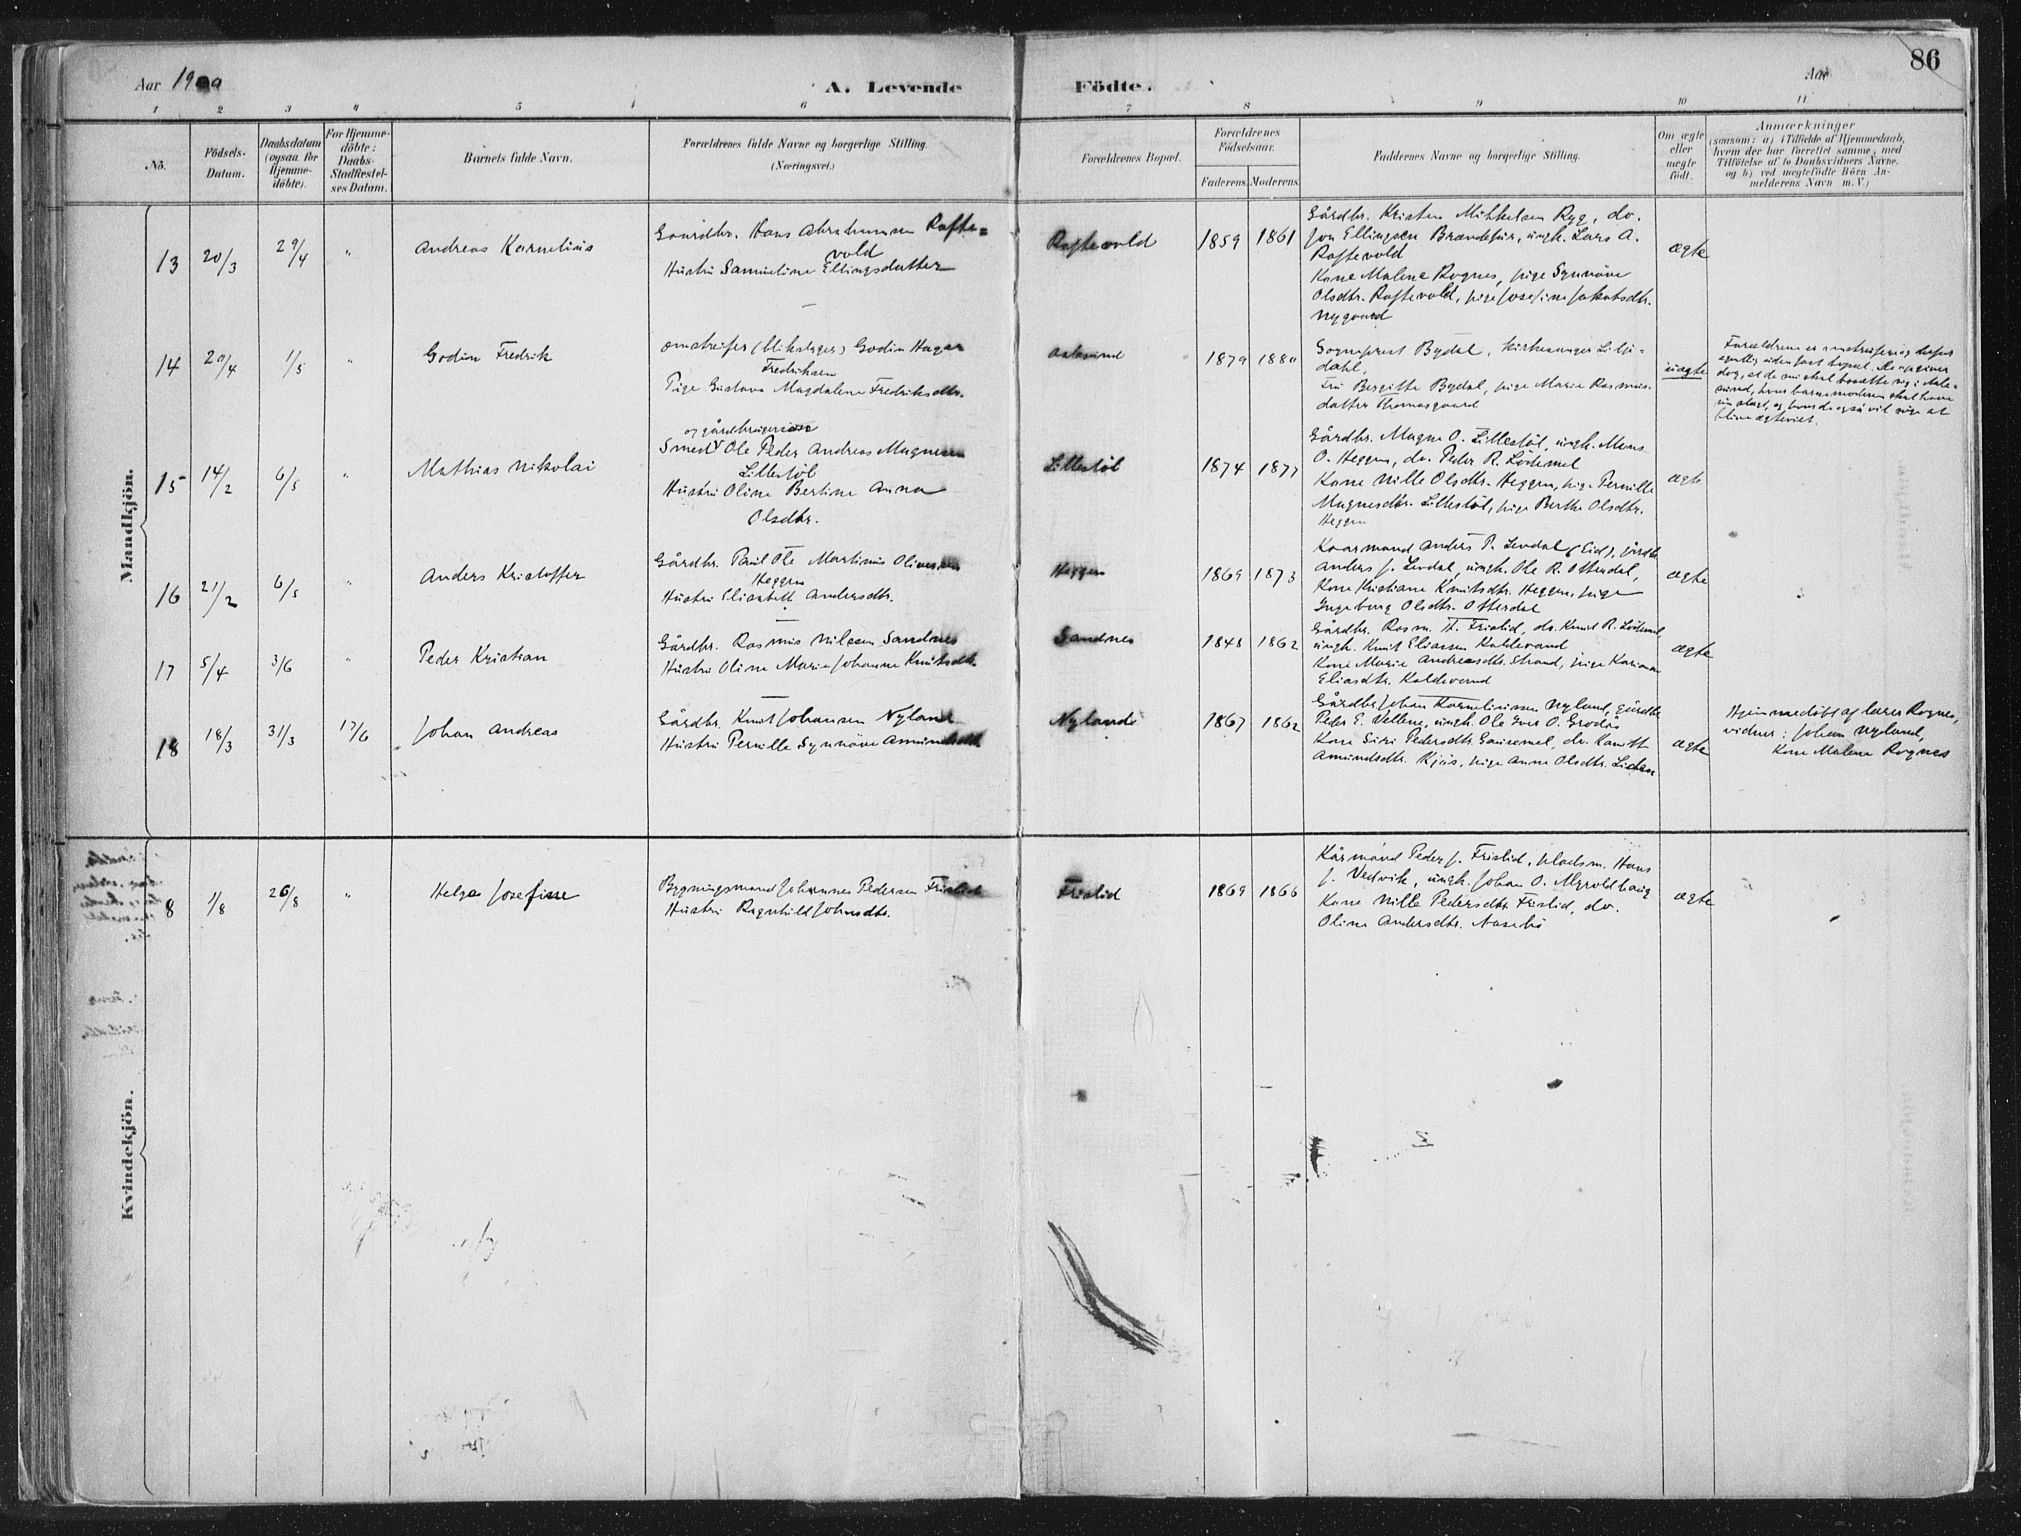 Aar 1900
A. Levende
Födte.
Aar
86
1 2 3 4 5 6 7 8 9 10 11
No.
Födsels-
Datum.
Daabsdatum
(ogsaa for
Hjemme-
döbte).
For Hjemme-
döbte:
Daabs-
Stadfæstel-
ses Datum.
Barnets fulde Navn.
Forældrenes fulde Navne og borgerlige Stilling.
(Næringsvei.)
Forældrenes Bopæl.
Forældrenes
Födselsaar.
Faderens. Moderens.
Faddernes Navne og borgerlige Stilling.
Om ægte
eller
uægte
födt.
Anmærkninger
(saasom: a) i Tilfælde af Hjemmedaab,
hvem der har forrettet samme, med
Tilföielse af to Daabsvidners Navne.
og b) ved uægtefödte Börn An-
melderens Navn m. V.)
Mandkjön.
13 20/3 29/4 " Andreas Kornelius
Gaardbr. Hans Abrahamsen Rafte=
vold
Hustru Samueline Ellingsdatter
Raftevold 1859 1861
Gårdbr. Kristen Mikkelsen Ryg, do.
Jon Ellingsen Brændefur, ungk. Lars A.
Raftevold
Kone Malene Rognes, pige Synnöve
Olsdtr. Raftevold, pige Josefine Jakobsdtr.
Nygaard
ægte
14 20/4 1/5 " Godin Fredrik
Omstreifer (blikslager) Godin Hagar
Fredriksen
Pige Gustava Magdalene Fredriksdtr.
Aalesund 1879 1880
Sogneprest Bydal, kirkesanger Lilje-
dahl,
Fru Birgitte Bydal, pige Marie Rasmus-
datter Thomasgaard
uægte
Forældrene er omstreifere og derfor
egentlig uden fast bopæl. De opgiver
dog, at de nu skal bosætte sig i Aale-
sund, hvor barnemoderen skal have
sin slægt, og hvor de også vil söge at
blive ægteviet.
15 14/2 6/5 " Mathias Nikolai
og gårdbrugersön
Smed Ole Peder Andreas Magnesen
Lillestöl
Hustru Oline Bertine Anna
Olsdtr.
Lillestöl 1874 1877
Gårdbr. Magne O. Lillestöl, ungk. Mons
O. Heggen, do. Peder R. Lödemel
Kone Nille Olsdtr. Heggen, pige Pernille
Magnesdtr. Lillestöl, pige Berthe Olsdtr.
Heggen
ægte
16 21/2 6/5 " Anders Kristoffer
Gårdbr. Paul Ole Martinus Olivesen
Heggen
Hustru Elisabeth Andersdtr.
Heggen 1869 1873
Kaarmand Anders P. Levdal (Eid), gårdbr.
Anders J. Levdal, ungk. Ole R. Otterdal,
Kone Kristiane Knutsdtr. Heggen, pige
Ingeborg Olsdtr. Otterdal
ægte
17 5/4 3/6 " Peder Kristian
Gårdbr. Rasmus Nilssen Sandnes
Hustru Oline Marie Johanne Knutsdtr.
Sandnes 1848 1862
Gårdbr. Rasm. H. Frislid, do. Knut R. Lödemel,
ungk. Knut Eliassen Kaldevand
Kone Marie Andreasdtr. Strand, pige Karianne
Eliasdtr. Kaldevand
ægte
18 18/3 31/3 17/6 Johan Andreas
Gårdbr. Knut Johansen Nyland
Hustru Pernille Synnöve Amundsdtr.
Nylands 1867 1862
Gårdbr. Johan Korneliussen Nyland, gårdbr.
Peder E. Vellene, ungk. Ole Iver O. Grodås
Kone Siri Pedersdtr. Gausemel, do.
Amundsdtr. Kjös, pige Anne Olsdtr.
ægte
Hjemmedöbt af lærer Rognes,
vidner: Johan Nyland,
Kone Malene Rognes
Kvindekjön.
8 1/8 26/8 " Helga Josefine
Bygningsmand Johannes Pedersen Frislid
Hustru Ragnhild Johnsdtr.
Frislid 1869 1866
Kårmand Peder J. Frislid, pladsm. Hans
J. Vedvik, ungk. Johan O. Myroldhaug
Kone Nille Pedersdtr. Frislid, do.
Oline Andersdtr. Nasebö
ægte